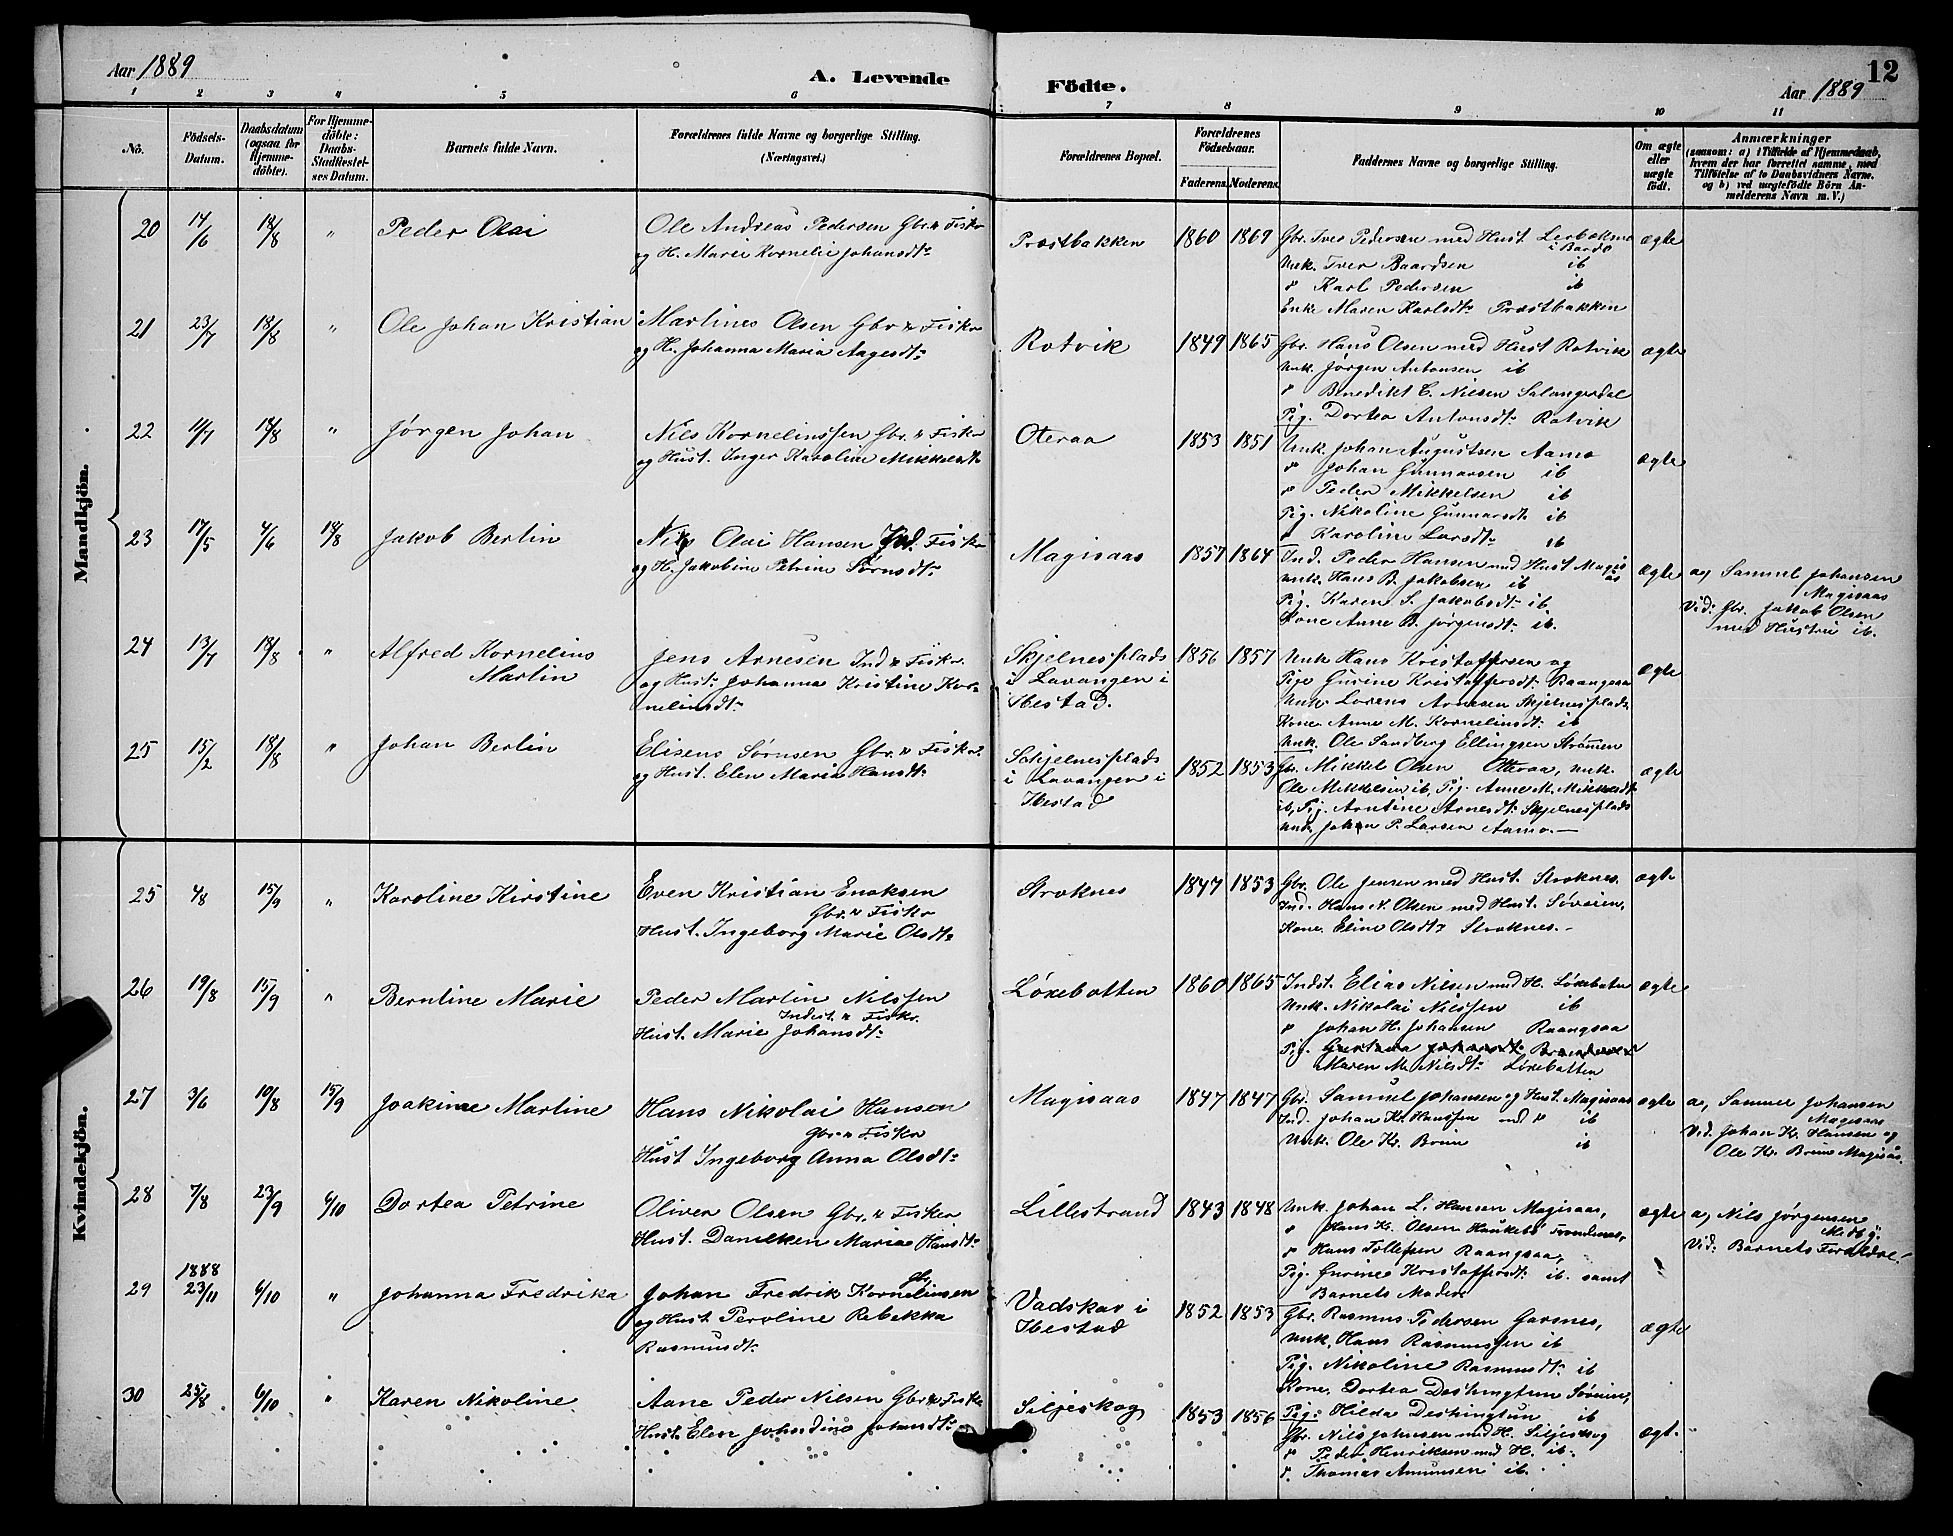 Aar 1889
A. Levende
Födte.
Aar 1889
12
1 2 3 4 5 6 7 8 9 10 11
No.
Födsels-
Datum.
Daabsdatum
(ogsaa for
Hjemme-
döbte).
For Hjemme-
döbte:
Daabs-
Stadfæstel-
ses Datum.
Barnets fulde Navn.
Forældrenes fulde Navne og borgerlige Stilling.
(Næringsvei.)
Forældrenes Bopæl.
Forældrenes
Födselsaar.
Faderens. Moderens.
Faddernes Navne og borgerlige Stilling.
Om ægte
eller
uægte
født.
Anmærkninger
(saasom: a) i Tilfælde af Hjemmedaab,
hvem der har forrettet samme, med
Tilföielse af to Daabsvidners Navne.
og b) ved uægtefödte Börn An-
melderens Navn m. V.)
Mandkjön.
20 14/6 18/8 " Peder Olai
Ole Andreas Pedersen Gbr. & Fisker
og H. Marei Kornelie Johansdt:
Præstbakken
1860 1869
Gbr. Iver Pedersen med Hust
i Bardo
Unk. Iver Baardsen ib
" Karl Pedersen ib
Enke Maren Karlsdt: Præstbakken
ægte
21 23/7 18/8 " Ole Johan Kristian
Martines Olsen Gbr & Fisker
og H. Johanna Maria Aagesdt:
Rotvik
1849 1865
Gbr. Hans Olsen med Hust Rotvik
Unk. Jørgen Antonsen ib
" Benedikt C. Nilsen Salangsdal
Pig. Dortea Antonsdt: Rotvik
ægte
22 11/7 18/8 " Jørgen Johan
Nils Kornelinssen Gbr. & Fisker
og Hust. Inger Karoline Mikkelsdt:
Oteraa
1853 1851
Unk. Johan Augustsen Aamo
" Johan Gunnarsen ib
" Peder Mikkelsen ib
Pig. Nikoline Gunnarsdt. ib
" Karoline Larsdt: ib
ægte
23 17/5 4/6 18/8 Jakob Berlin
Nils Olai Hansen Ind. Fisker
og H. Jakobine Petrine Sørnsdt:
Magisaas
1857 1864
Ind. Peder Hansen med Hust Magis
aas
Unk. Hans B. Jakobsen ib
Pig. Karen S. Jakobsdt: ib
Kone Anne B. Jørgensdt: ib.
ægte
a, Samuel Johansen
Magisaas
Vid: Gbr. Jakob Olsen
med Hustru ib.
24 13/7 18/8 " Alfred Kornelius
Martin
Jens Arnesen Ind & Fisker
og Hust: Johanna Kristine Kor-
nelinsdt:
Skjelnesplads
i Lavangen i
Ibestad.
1856 1857
Unk Hans Kristoffersen og
Pige Gurine Kristoffersdt: Raangsaa
Unk. Lorens Arnesen Skjelnesplads
Kone Anne M. Kornelinsdt: ib
Unk. Ole Sandberg Ellingsen Strømen
ægte
25 15/2 18/8 " Johan Berlin
Eliseus Sørnsen Gbr. & Fisker
og Hust. Elen Marie Hansdt:
Skjelnesplads
i Lavangen i
Ibestad
1852 1853
Gbr. Mikkel Olsen Otteraa, Unk.
Ole Mikkelsen ib, Pig. Anne M. Mikkelsdt:
ib, Pig. Arntine Arnesdt: Skjelnesplads
Unk. Johan P. Larsen Aamo.
ægte
Kvindekjön.
25 4/8 15/9 " Karoline Kirstine
Even Kristian Enoksen
Gbr. & Fisker
Hust. Ingeborg Marie Olsdt:
Stroknes
1847 1853
Gbr. Ole Jensen med Hust. Stroknes.
Ind. Hans N. Olsen med Hust. Søveien,
Kone. Eline Olsdt: Stroknes.
ægte
26 19/8 15/9 " Berntine Marie
Peder Martin Nilssen
Indest. & Fisker.
Hust. Marie Johansdt:
Løksebotten
1860 1865
Indst. Elias Nilsen med H. Løksebotn
Unk. Nikolai Nilssen ib
" Johan H. Johansen Raangsaa
Pig.
Maren M. Nilsdt: Løksebotten
ægte
27 3/6 10/8 15/9 Joakime Martine
Hans Nikolai Hansen
Gbr. & Fisker
Hust Ingeborg Anna Olsdt:
Magisaas
1847 1847
Gbr. Samuel Johansen og Hust. Magisaas
Ind. Johan Kr. Hanssen med " ib
Unk. Ole Kr. Brun ib
ægte
a, Samuel Johansen
Magisaas
Vid. Johan Kr. Hansen og
Ole Kr. Brun Magisaas.
28 7/8 23/9 6/10 Dortea Petrine
Oliver Olsen Gbr. & Fisker
Hust. Danelken Maria Hansdt:
Lillestrand
1843 1848
Unk. Johan L. Hansen Magisaas,
" Hans Kr. Olsen
" Hans Tollefsen Raangsaa,
Pig. Gurine Kristoffersdt: ib. samt
Barnets Moder.
ægte
a, Nils Jørgensen
Vid: Barnets Forældre
29 1888
23/11 6/10 " Johanna Fredrika
Gbr.
Johan Fredrik Kornelinsen
og Hust. Peroline Rebekka
Rasmusdt:
Vadskar i
Ibestad
1852 1853
Gbr. Rasmus Pedersen Garsnes,
Unk. Hans Rasmussen ib
Pig. Nikoline Rasmusdt: ib
Kone, Dortea Deshingtun Søveien,
Pig: Hilda Deshingtun ib
ægte
30 25/8 6/10 " Karen Nikoline
Aane Peder Nilsen Gbr. & Fisker
Hust. Elen Johndine Johansdt:
Siljeskog
1853 1856
Gbr. Nils Johnsen med H. Siljeskog
" Peder Henriksen med H. ib.
" Thomas Amundsen ib.
ægt.